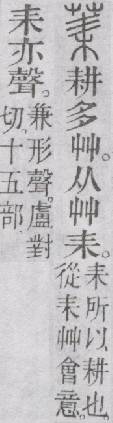 䒹耕多艸。从艸耒。
耒所以耕也。
從耒艸會意。
耒亦聲。
兼形聲。盧對
切。十五部。